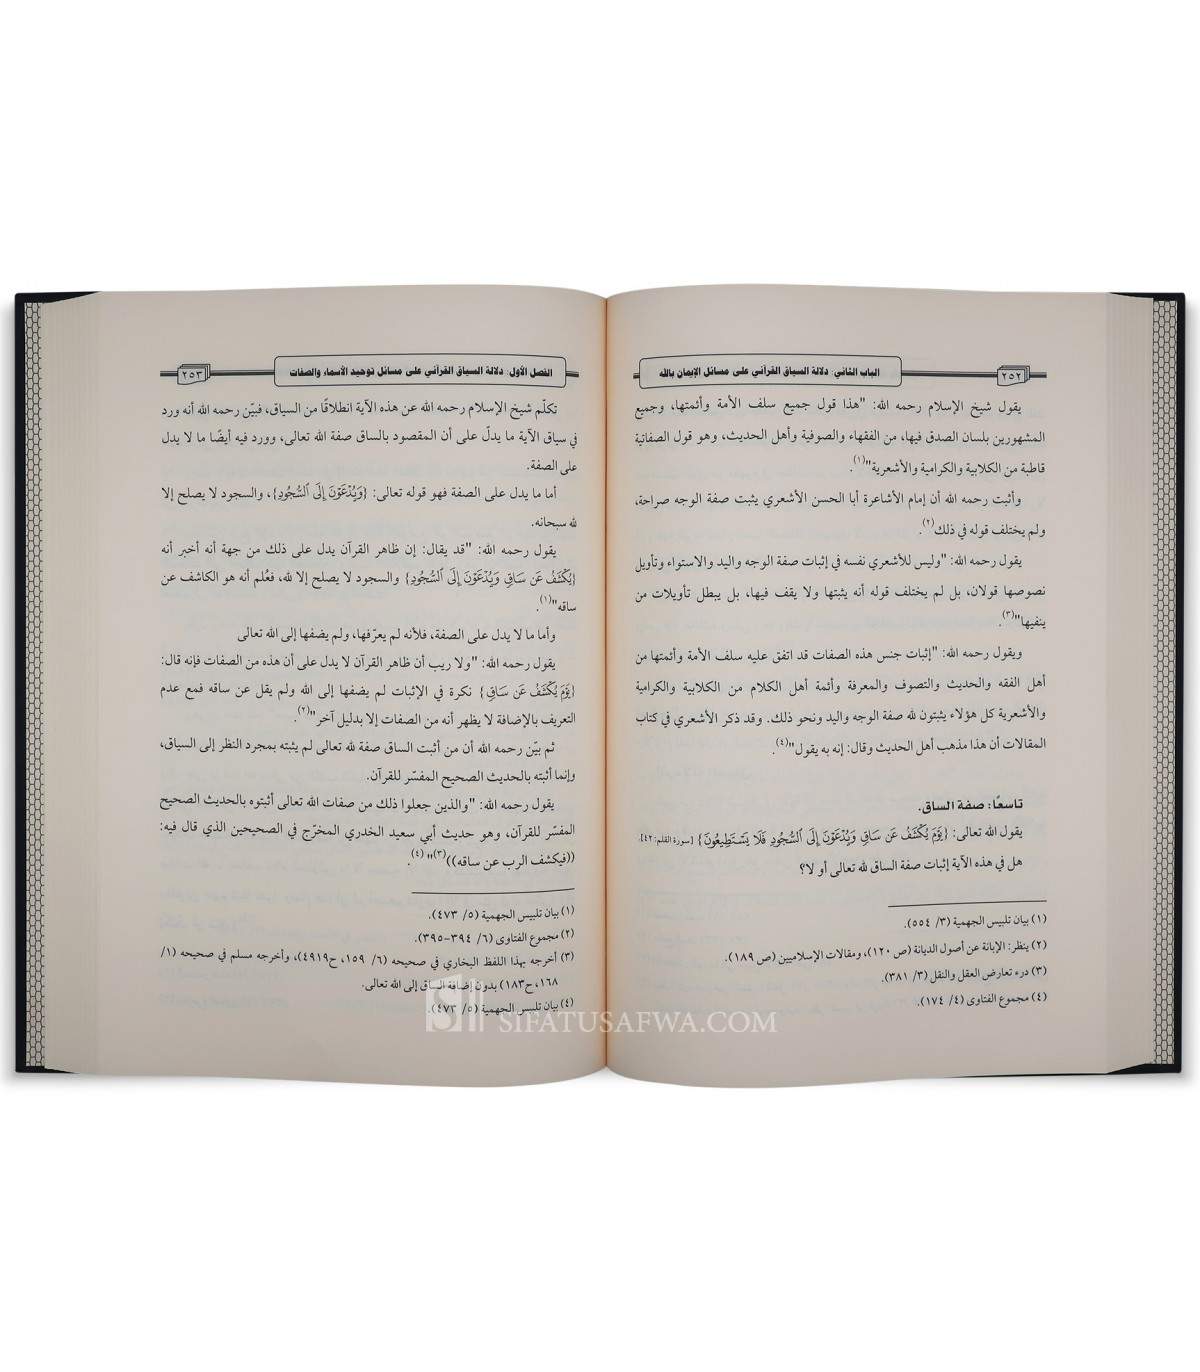 ٢٥٢
الباب الثاني: دلالة السياق القرآني على مسائل الإيمان بالله
يقول شيخ الإسلام رحمه الله: "هذا قول جميع سلف الأمة وأئمتها، وجميع
المشهورين بلسان الصدق فيها، من الفقهاء والصوفية وأهل الحديث، وهو قول الصفاتية
قاطبة من الكلابية والكرامية والأشعرية"(١).
وأثبت رحمه الله أن إمام الأشاعرة أبا الحسن الأشعري يثبت صفة الوجه صراحة،
ولم يختلف قوله في ذلك(٢).
يقول رحمه الله: "وليس للأشعري نفسه في إثبات صفة الوجه واليد والاستواء وتأويل
نصوصها قولان، بل لم يختلف قوله أنه يثبتها ولا يقف فيها، بل يبطل تأويلات من
ينفيها"(٣).
ويقول رحمه الله: "إثبات جنس هذه الصفات قد اتفق عليه سلف الأمة وأئمتها من
أهل الفقه والحديث والتصوف والمعرفة وأئمة أهل الكلام من الكلابية والكرامية
والأشعرية كل هؤلاء يثبتون لله صفة الوجه واليد ونحو ذلك. وقد ذكر الأشعري في كتاب
المقالات أن هذا مذهب أهل الحديث وقال: إنه به يقول"(٤).
تاسعًا: صفة الساق.
يقول الله تعالى: {يَوْمَ يُكْشَفُ عَن سَاقٍ وَيُدْعَوْنَ إِلَى ٱلسُّجُودِ فَلَا يَسْتَطِيعُونَ} [سورة القلم: ٤٢].
هل في هذه الآية إثبات صفة الساق لله تعالى أو لا؟
(١) بيان تلبيس الجهمية (٣/ ٥٥٤).
(٢) ينظر: الإبانة عن أصول الديانة (ص ١٢٠)، ومقالات الإسلاميين (ص ١٨٩).
(٣) درء تعارض العقل والنقل (٣/ ٣٨١).
(٤) مجموع الفتاوى (٤/ ١٧٤).
الفصل الأول: دلالة السياق القرآني على مسائل توحيد الأسماء والصفات
٢٥٣
تكلّم شيخ الإسلام رحمه الله عن هذه الآية انطلاقًا من السياق، فبيّن رحمه الله أنه ورد
في سياق الآية ما يدلّ على أن المقصود بالساق صفة الله تعالى، وورد فيه أيضًا ما لا يدل
على الصفة.
أما ما يدل على الصفة فهو قوله تعالى: {وَيُدْعَوْنَ إِلَى ٱلسُّجُودِ}، والسجود لا يصلح إلا
لله سبحانه.
يقول رحمه الله: "قد يقال: إن ظاهر القرآن يدل على ذلك من جهة أنه أخبر أنه
{يُكْشَفُ عَن سَاقٍ وَيُدْعَوْنَ إِلَى ٱلسُّجُودِ} والسجود لا يصلح إلا لله، فعُلم أنه هو الكاشف عن
ساقه"(١).
وأما ما لا يدل على الصفة، فلأنه لم يعرّفها، ولم يضفها إلى الله تعالى
يقول رحمه الله: "ولا ريب أن ظاهر القرآن لا يدل على أن هذه من الصفات فإنه قال:
{يَوْمَ يُكْشَفُ عَن سَاقٍ} نكرة في الإثبات لم يضفها إلى الله ولم يقل عن ساقه فمع عدم
التعريف بالإضافة لا يظهر أنه من الصفات إلا بدليل آخر"(٢).
ثم بيّن رحمه الله أن من أثبت الساق صفة لله تعالى لم يثبته بمجرد النظر إلى السياق،
وإنما أثبته بالحديث الصحيح المفسّر للقرآن.
يقول رحمه الله: "والذين جعلوا ذلك من صفات الله تعالى أثبتوه بالحديث الصحيح
المفسّر للقرآن، وهو حديث أبي سعيد الخدري المخرّج في الصحيحين الذي قال فيه:
((فيكشف الرب عن ساقه))(٣)"(٤).
(١) بيان تلبيس الجهمية (٥/ ٤٧٣).
(٢) مجموع الفتاوى (٦/ ٣٩٤-٣٩٥).
(٣) أخرجه بهذا اللفظ البخاري في صحيحه (٦/ ١٥٩، ح٤٩١٩)، وأخرجه مسلم في صحيحه (١/
١٦٨، ح١٨٣) بدون إضافة الساق إلى الله تعالى.
(٤) بيان تلبيس الجهمية (٥/ ٤٧٣).
SIFATUSAFWA.COM